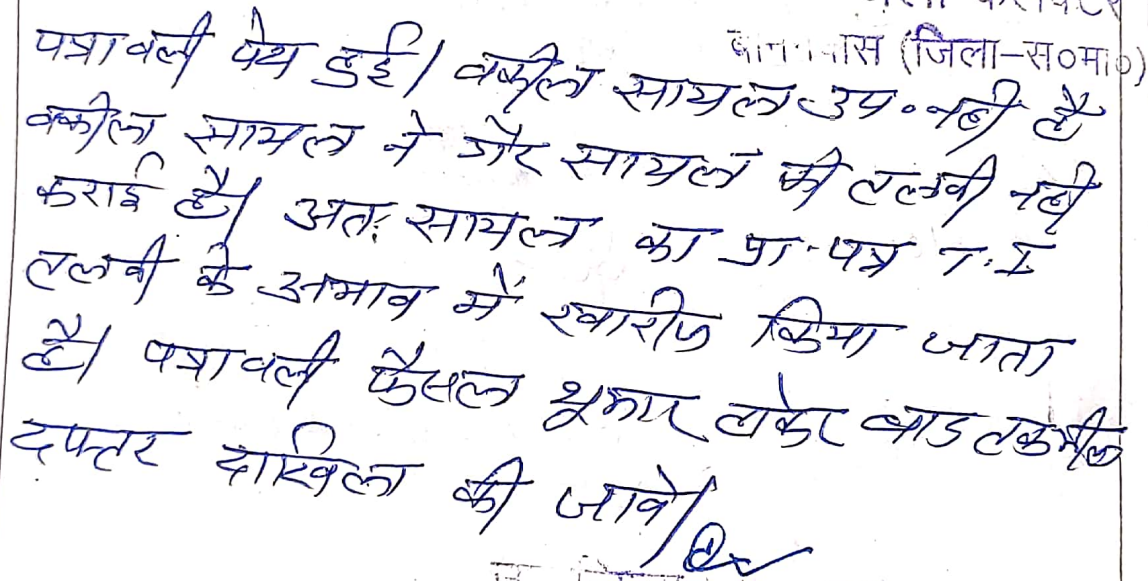 (जिला-स०मा०)
पत्रावली पेश हुई। वकील सायल उप० नही है
वकील सायल ने गैर सायल की तलवी नही
कराई है। अतः सायल का प्रा.पत्र T.I
तलवी के अभाव में खारीज किया जाता
है। पत्रावली फैसल शुमार होकर बाद तकमील
दफ्तर दाखिल की जावे।